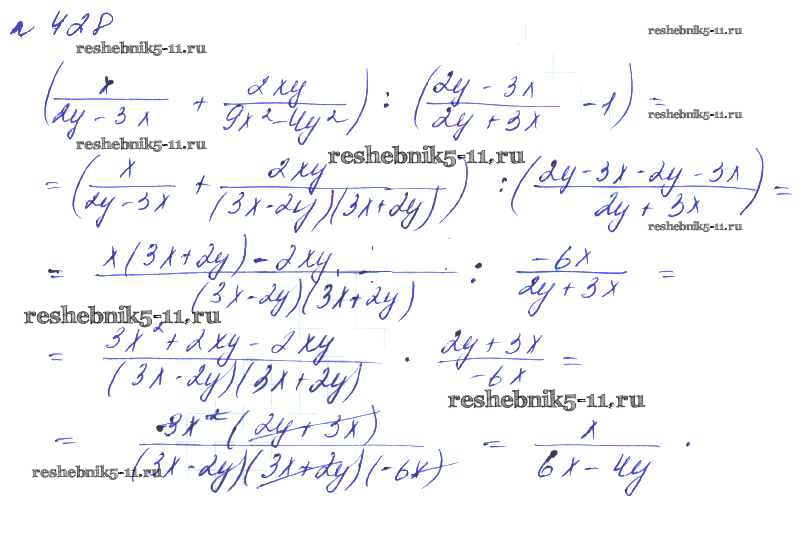 № 428
reshebnik5-11.ru reshebnik5-11.ru
(x/(2y - 3x) + 2xy/(9x² - 4y²)) : ((2y - 3x)/(2y + 3x) - 1) =
reshebnik5-11.ru reshebnik5-11.ru reshebnik5-11.ru
= (x/(2y - 3x) + 2xy/((3x - 2y)(3x + 2y))) : ((2y - 3x - 2y - 3x)/(2y + 3x)) =
reshebnik5-11.ru
= (x(3x + 2y) - 2xy)/((3x - 2y)(3x + 2y)) : (-6x)/(2y + 3x) =
reshebnik5-11.ru
= (3x² + 2xy - 2xy)/((3x - 2y)(3x + 2y)) · (2y + 3x)/(-6x) =
reshebnik5-11.ru
= (-3x²(2y + 3x))/((3x - 2y)(3x + 2y)(-6x)) = x/(6x - 4y) .
reshebnik5-11.ru